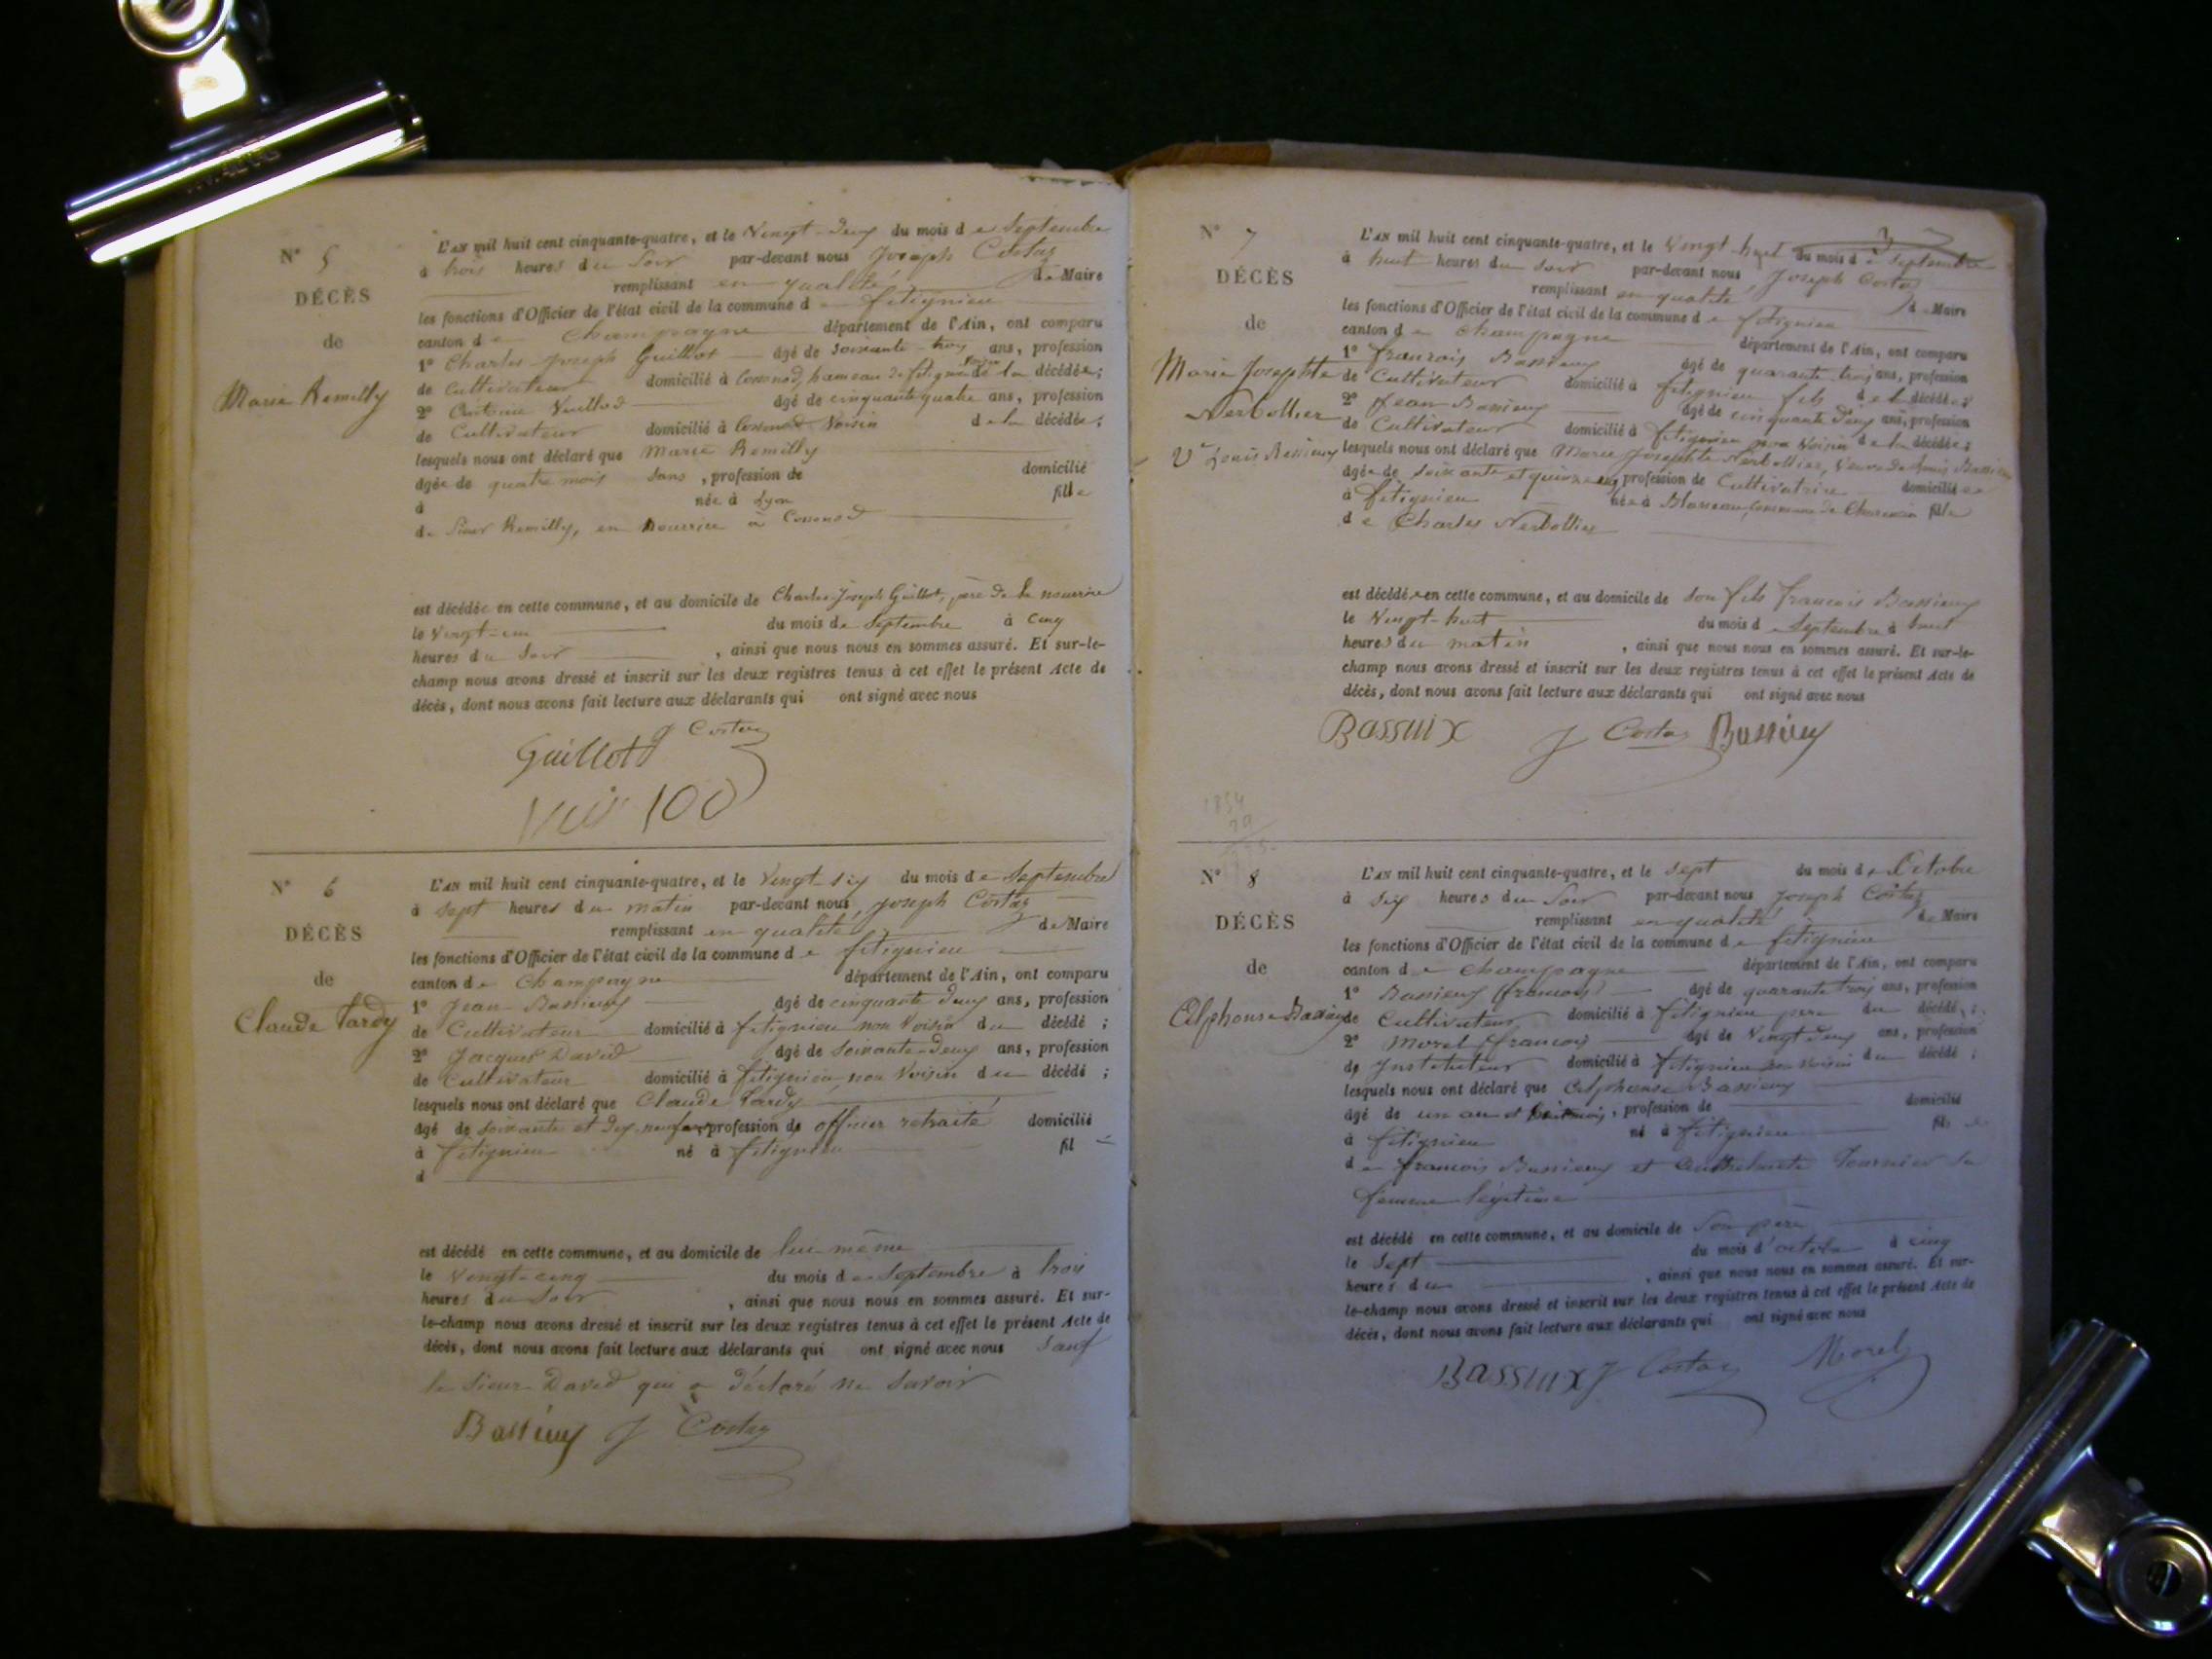 N° 5
DÉCÈS
de
Marie Remilly
L'AN mil huit cent cinquante-quatre, et le Vingt-deux du mois de Septembre
à trois heures du Soir par-devant nous Joseph Costaz
remplissant en qualité de Maire
les fonctions d'Officier de l'état civil de la commune de fitignieu
canton de Champagne département de l'Ain, ont comparu
1° Charles Joseph Guillot âgé de soixante-trois ans, profession
de Cultivateur domicilié à Cossonod, hameau de fitignieu Voisin de la décédée;
2° Antoine Vuillod âgé de cinquante quatre ans, profession
de Cultivateur domicilié à Cossonod Voisin de la décédée;
lesquels nous ont déclaré que Marie Remilly
âgée de quatre mois sans, profession de domicilié
à née à Lyon fille
de Sieur Remilly, en nourrice à Cossonod
est décédée en cette commune, et au domicile de Charles-Joseph Guillot, père de la nourrice
le Vingt-un du mois de Septembre à cinq
heures du Soir, ainsi que nous nous en sommes assuré. Et sur-le-
champ nous avons dressé et inscrit sur les deux registres tenus à cet effet le présent Acte de
décès, dont nous avons fait lecture aux déclarants qui ont signé avec nous
J Costaz
Guillot
100
N° 6
DÉCÈS
de
Claude Tardy
L'AN mil huit cent cinquante-quatre, et le Vingt-six du mois de Septembre
à sept heures du matin par-devant nous, Joseph Costaz
remplissant en qualité de Maire
les fonctions d'Officier de l'état civil de la commune de fitignieu
canton de Champagne département de l'Ain, ont comparu
1° Jean Bassieux âgé de cinquante deux ans, profession
de Cultivateur domicilié à fitignieu non Voisin du décédé;
2° Jacques David âgé de soixante-deux ans, profession
de Cultivateur domicilié à fitignieu, non Voisin du décédé;
lesquels nous ont déclaré que Claude Tardy
âgé de soixante et dix-neuf ans, profession de officier retraité domicilié
à fitignieu né à fitignieu fil
d
est décédé en cette commune, et au domicile de lui-même
le Vingt-cinq du mois de Septembre à trois
heures du Soir, ainsi que nous nous en sommes assuré. Et sur-
le-champ nous avons dressé et inscrit sur les deux registres tenus à cet effet le présent Acte de
décès, dont nous avons fait lecture aux déclarants qui ont signé avec nous Sauf
le Sieur David qui a déclaré ne Savoir
Bassieux J Costaz
N° 7
DÉCÈS
de
Marie Josephte
Nerbollier
Ve Louis Bassieux
L'AN mil huit cent cinquante-quatre, et le Vingt-huit du mois de Septembre
à huit heures du Soir par-devant nous, Joseph Costaz
remplissant en qualité de Maire
les fonctions d'Officier de l'état civil de la commune de fitignieu
canton de Champagne département de l'Ain, ont comparu
1° francois Bassieux âgé de quarante trois ans, profession
de Cultivateur domicilié à fitignieu fils de la décédée
2° Jean Bassieux âgé de cinquante deux ans, profession
de Cultivateur domicilié à fitignieu non Voisin de la décédée;
lesquels nous ont déclaré que Marie Josephte Nerbollier, Veuve de Louis Bassieux
âgée de soixante et quinze ans, profession de Cultivatrice domiciliée
à fitignieu née à commune de fille
de Charles Nerbollier
est décédée en cette commune, et au domicile de son fils francois Bassieux
le Vingt-huit du mois de Septembre à
heures du matin, ainsi que nous nous en sommes assuré. Et sur-le-
champ nous avons dressé et inscrit sur les deux registres tenus à cet effet le présent Acte de
décès, dont nous avons fait lecture aux déclarants qui ont signé avec nous
Bassuix J Costaz Bassieux
1854
N° 8
DÉCÈS
de
Alphonse Bassieux
L'AN mil huit cent cinquante-quatre, et le Sept du mois d'Octobre
à six heures du Soir par-devant nous Joseph Costaz
remplissant en qualité de Maire
les fonctions d'Officier de l'état civil de la commune de fitignieu
canton de Champagne département de l'Ain, ont comparu
1° Bassieux (francois) âgé de quarante trois ans, profession
de Cultivateur domicilié à fitignieu père du décédé;
2° Morel (francois) âgé de Vingt deux ans, profession
de Instituteur domicilié à fitignieu non Voisin du décédé;
lesquels nous ont déclaré que Alphonse Bassieux
âgé de un an et huit mois, profession de domicilié
à fitignieu né à fitignieu fils
de francois Bassieux et Anthelmette Tournier sa
femme légitime
est décédé en cette commune, et au domicile de Son père
le Sept du mois d'octobre à cinq
heures du, ainsi que nous nous en sommes assuré. Et sur-
le-champ nous avons dressé et inscrit sur les deux registres tenus à cet effet le présent Acte de
décès, dont nous avons fait lecture aux déclarants qui ont signé avec nous
Bassuix J Costaz Morel